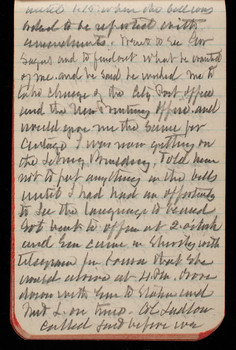 until 1.15, when the bill was
voted to be reported with
amendments. Went to see Gov
Sayers and to find out what he wanted
of me. and he said he wished me to
take charge of the City Post office
and the New Printing office. and
would give me the same for
Chicago I was now getting on
the Library Building. Told him
not to put anything in the bills
until I had had an opportunity
to see the language to be used
Got back to office at 2 o'clock
and Gen came in shortly with
Telegram from that she
would arrive at 4 P.M. Drove
down with Gen to Station and
met L. on time. Col Ludlow
called just before we